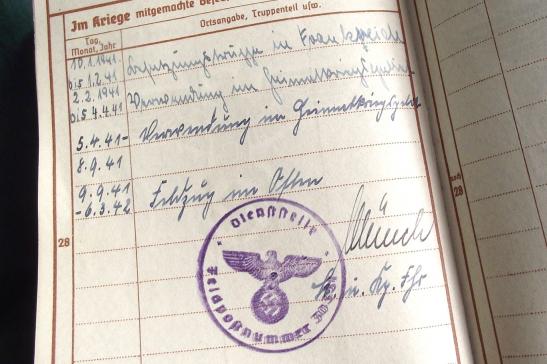 Im Kriege mitgemachte
Ortsangabe, Truppenteil usw.
Tag,
Monat, Jahr
10.1.1941.
Besatzungstruppe in Frankreich
bis 1.2.41
2.2.1941
Verwendung im Heimatkriegsgebiet
bis 4.4.41
5.4.41-
Verwendung im Heimatkriegsgebiet
8.9.41
9.9.41
Feldzug im Osten
-6.3.42
28
28
Dienststelle
Feldpostnummer
Münch
u. Kp. Fhr